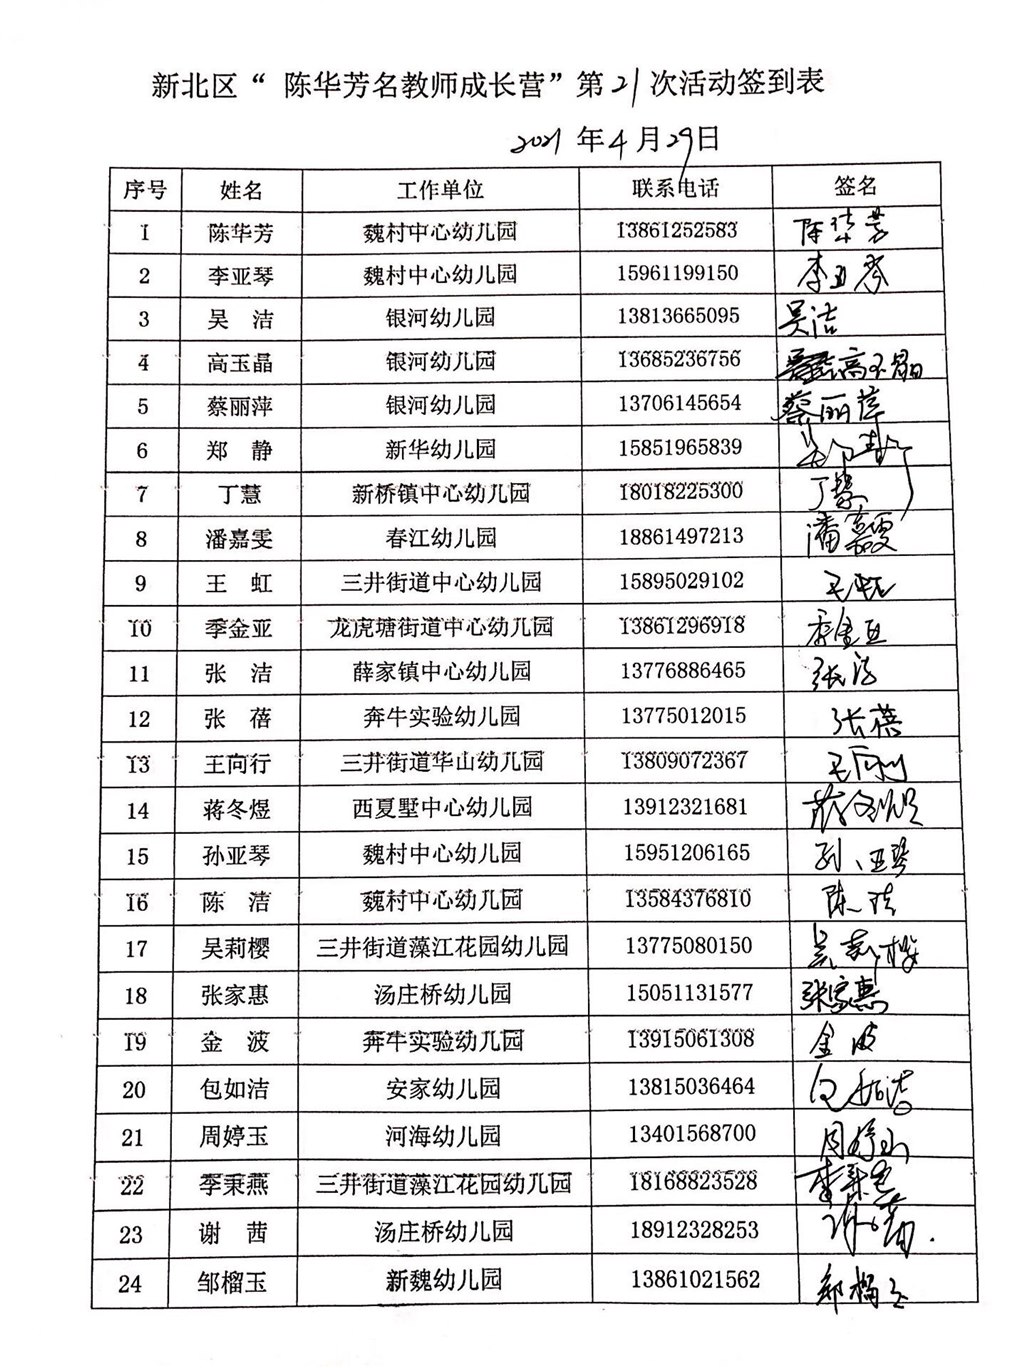 新北区“ 陈华芳名教师成长营”第21次活动签到表
2021年4月29日
序号 姓名 工作单位 联系电话 签名
1 陈华芳 魏村中心幼儿园 13861252583 陈华芳
2 李亚琴 魏村中心幼儿园 15961199150 李亚琴
3 吴 洁 银河幼儿园 13813665095 吴洁
4 高玉晶 银河幼儿园 13685236756 高玉晶
5 蔡丽萍 银河幼儿园 13706145654 蔡丽萍
6 郑 静 新华幼儿园 15851965839 郑静
7 丁慧 新桥镇中心幼儿园 18018225300 丁慧
8 潘嘉雯 春江幼儿园 18861497213 潘嘉雯
9 王 虹 三井街道中心幼儿园 15895029102 王虹
10 季金亚 龙虎塘街道中心幼儿园 13861296918 季金亚
11 张 洁 薛家镇中心幼儿园 13776886465 张洁
12 张 蓓 奔牛实验幼儿园 13775012015 张蓓
13 王向行 三井街道华山幼儿园 13809072367 王向行
14 蒋冬煜 西夏墅中心幼儿园 13912321681 蒋冬煜
15 孙亚琴 魏村中心幼儿园 15951206165 孙亚琴
16 陈 洁 魏村中心幼儿园 13584376810 陈洁
17 吴莉樱 三井街道藻江花园幼儿园 13775080150 吴莉樱
18 张家惠 汤庄桥幼儿园 15051131577 张家惠
19 金 波 奔牛实验幼儿园 13915061308 金波
20 包如洁 安家幼儿园 13815036464 包如洁
21 周婷玉 河海幼儿园 13401568700 周婷玉
22 李秉燕 三井街道藻江花园幼儿园 18168823528 李秉燕
23 谢 茜 汤庄桥幼儿园 18912328253 谢茜
24 邹榴玉 新魏幼儿园 13861021562 邹榴玉